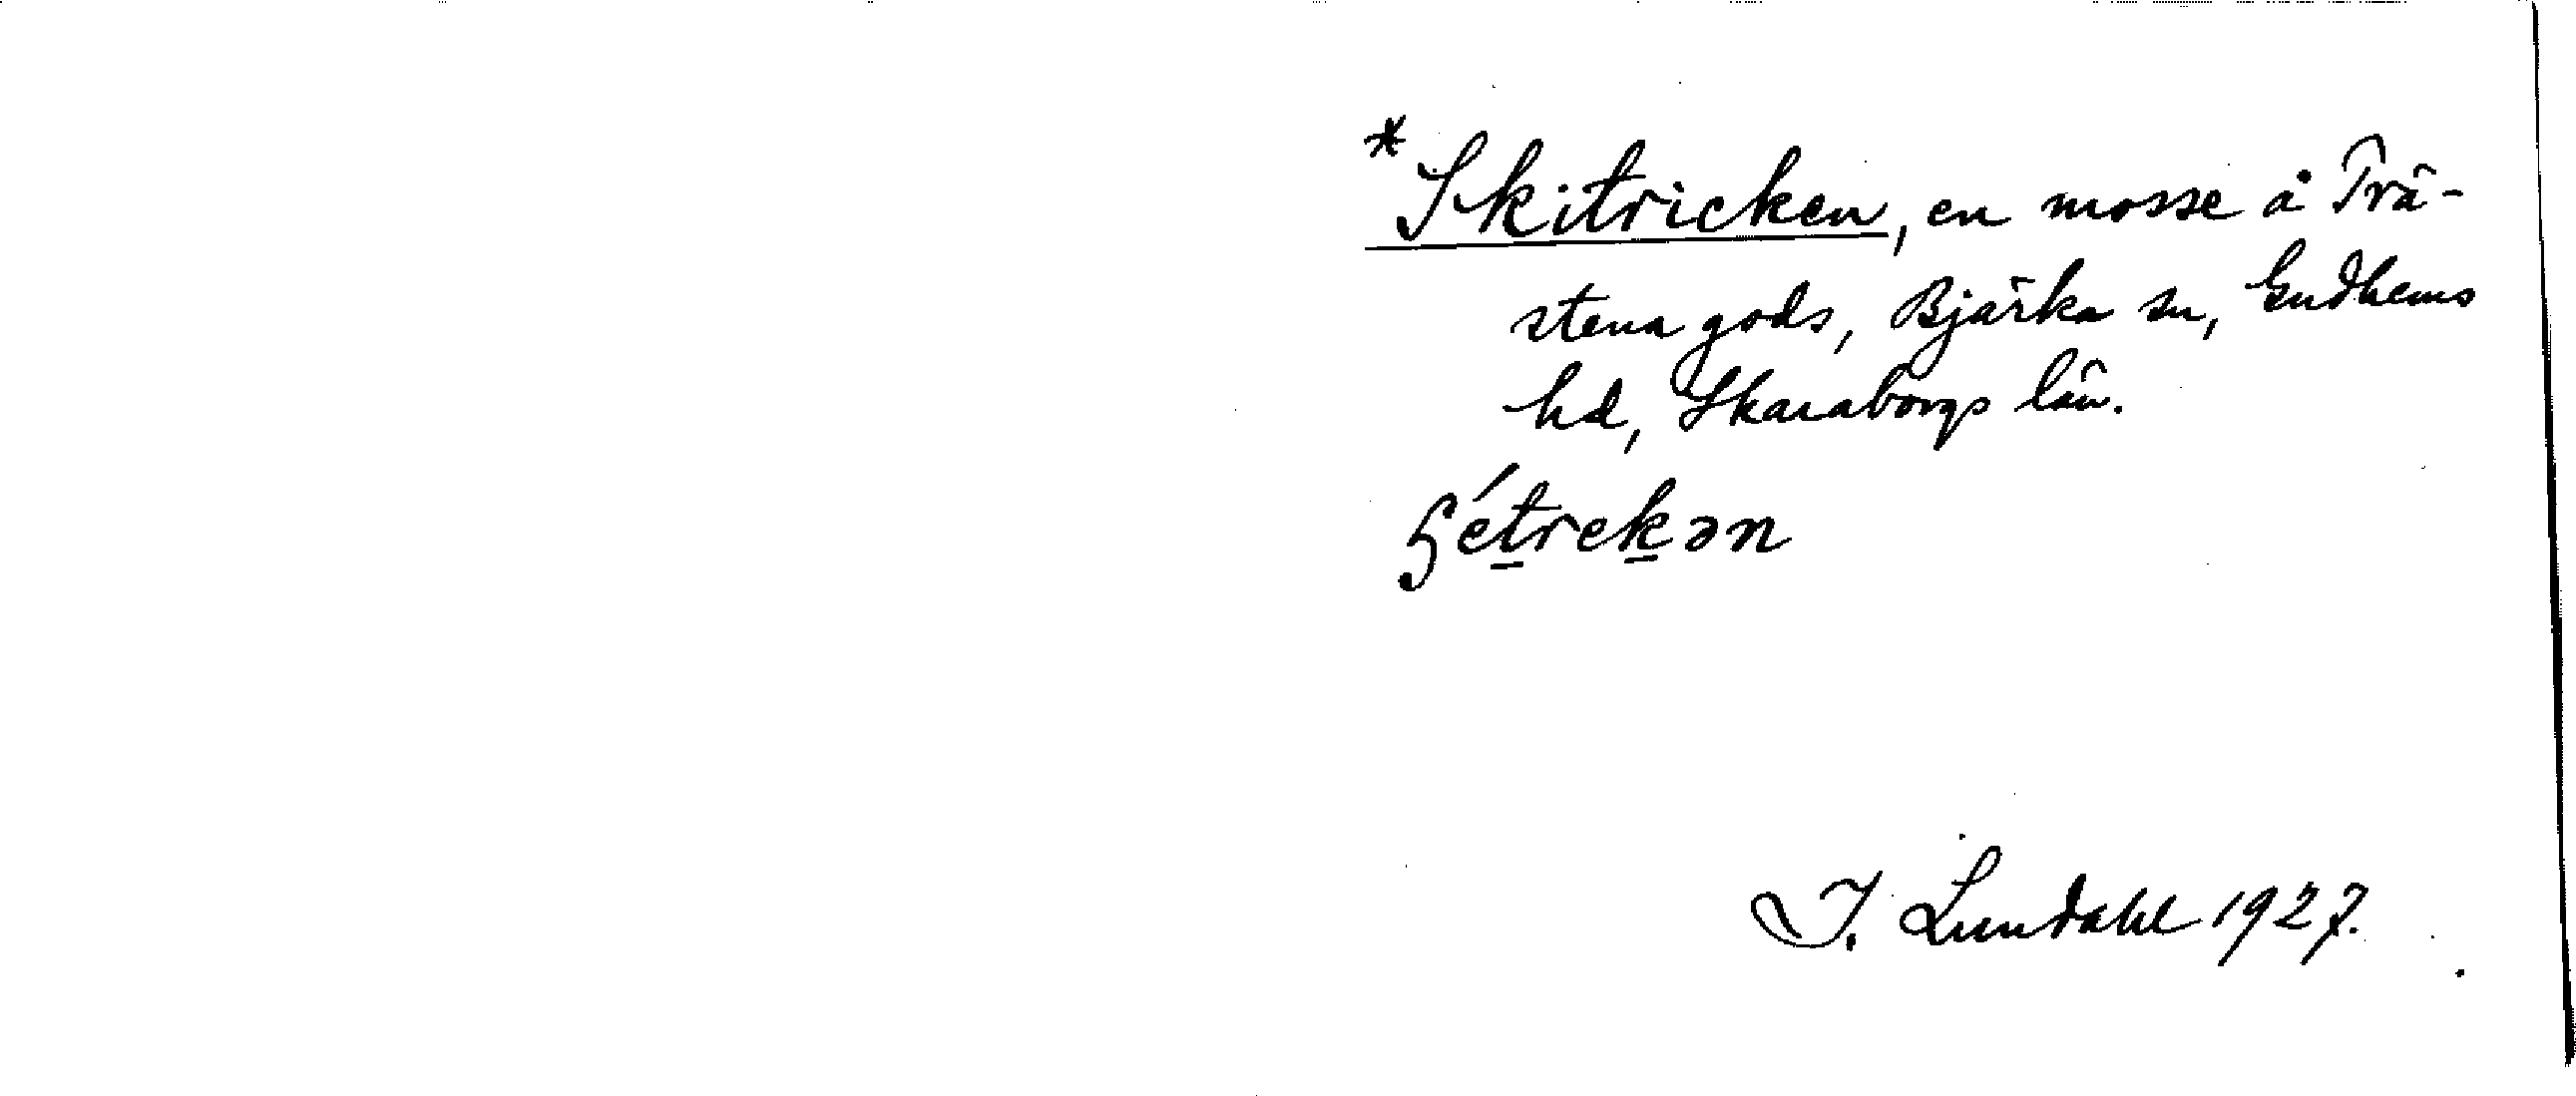 *Skitricken, en mosse å Trä-
stena gods, Bjärka sn, Gudhems
hd, Skaraborgs län.
ɧétrekən
I. Lundahl 1927.